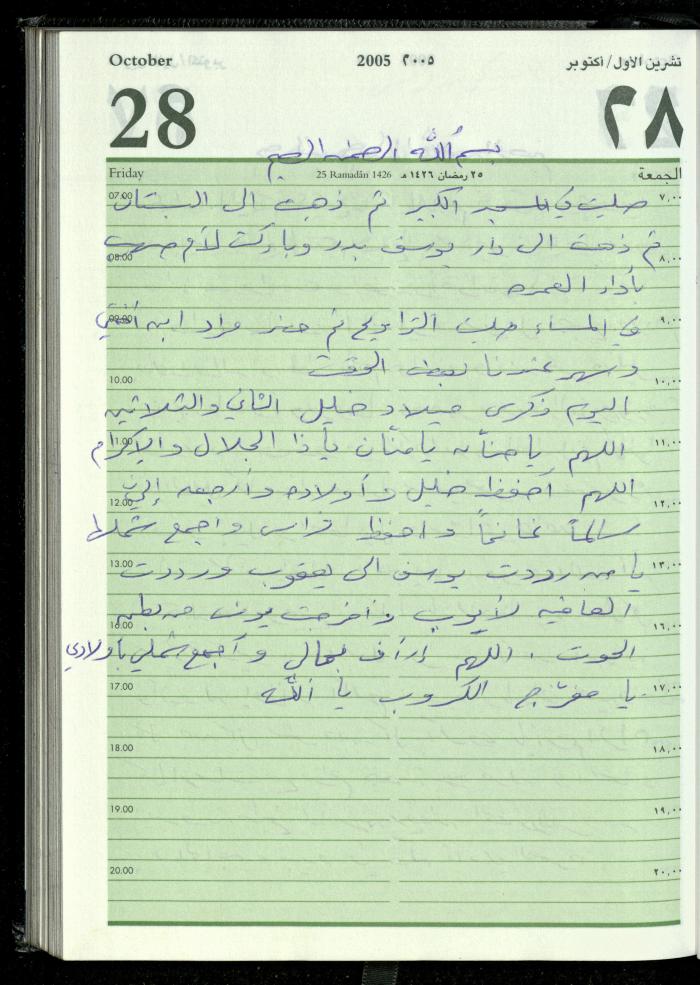 October 2005 ٢٠٠٥ تشرين الاول/أكتوبر
28 ٢٨
بسم الله الرحمن الرحيم
Friday 25 Ramadân 1426 ٢٥ رمضان ١٤٢٦ هـ الجمعة
07.00 صليت في المسجد الكبير ثم ذهبت الى البستان ٧,٠٠
ثم ذهبت الى دار يوسف بدر وباركت لأم صهيب
08.00 ٨,٠٠
بأداء العمره
09.00 في المساء صليت التراويح ثم حضر مراد ابن أختي ٩,٠٠
وسهر عندنا بعض الوقت
10.00 ١٠,٠٠
اليوم ذكرى ميلاد خليل الثاني والثلاثين
11.00 اللهم يا حنّان يا منّان يا ذا الجلال والإكرام ١١,٠٠
اللهم احفظ خليل وأولاده وأرجعه إليّ
12.00 ١٢,٠٠
سالماً غانماً واحفظ فراس واجمع شملنا
13.00 يا من رددت يوسف الى يعقوب ورددت ١٣,٠٠
العافيه لأيوب وأخرجت يونس من بطن
16.00 ١٦,٠٠
الحوت . اللهم إرأف بحالي و أجمع شملي بأولادي
17.00 يا مفرّج الكروب يا ألله ١٧,٠٠
18.00 ١٨,٠٠
19.00 ١٩,٠٠
20.00 ٢٠,٠٠